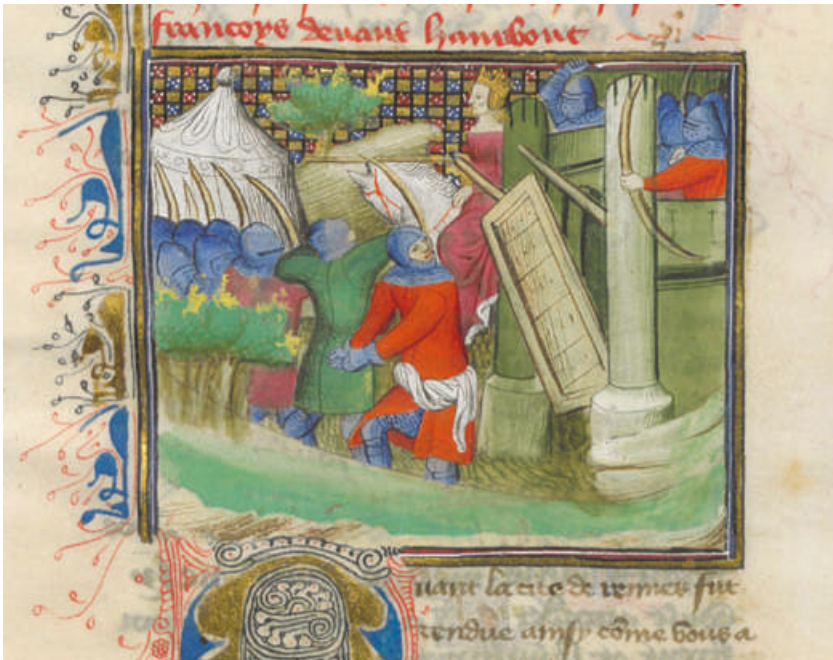 francoys devant hanibout
uant la cite de rennes fut
rendue ainsy côme vous a